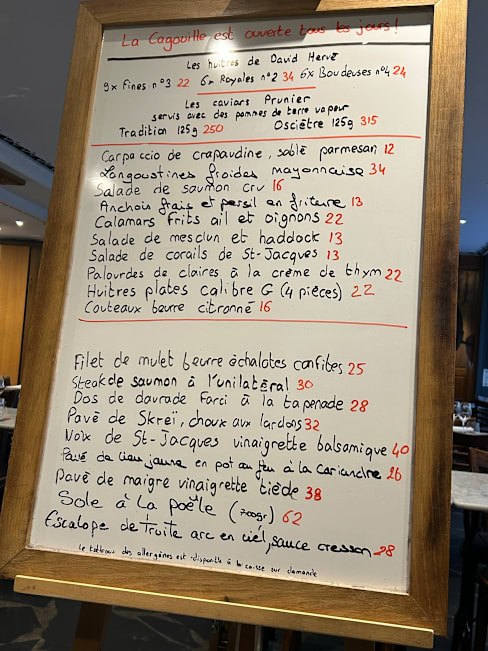 La Cagouille est ouverte tous les jours!
Les huîtres de David Hervé
9x Fines n°3 22 6x Royales n°2 34 6x Boudeuses n°4 24
Les caviars Prunier
servis avec des pommes de terre vapeur
Tradition 125g 250 Osciètre 125g 315
Carpaccio de crapaudine, sablé parmesan 12
Langoustines froides mayonnaise 34
Salade de saumon cru 16
Anchois frais et persil en friture 13
Calamars frits ail et oignons 22
Salade de mesclun et haddock 13
Salade de corails de St-Jacques 13
Palourdes de claires à la crème de thym 22
Huitres plates calibre G (4 pièces) 22
Couteaux beurre citronné 16
Filet de mulet beurre èchalotes confites 25
Steak de saumon à l'unilatèral 30
Dos de daurade Farci à la tapenade 28
Pavè de Skreï, choux aux lardons 32
Noix de St-Jacques vinaigrette balsamique 40
Pavé de lieu jaune en pot au feu à la coriandre 26
Pavè de maigre vinaigrette tiède 38
Sole à la poêle (700gr) 62
Escalope de truite arc en ciel, sauce cresson 28
le tableau des allergènes est disponible à la caisse sur demande